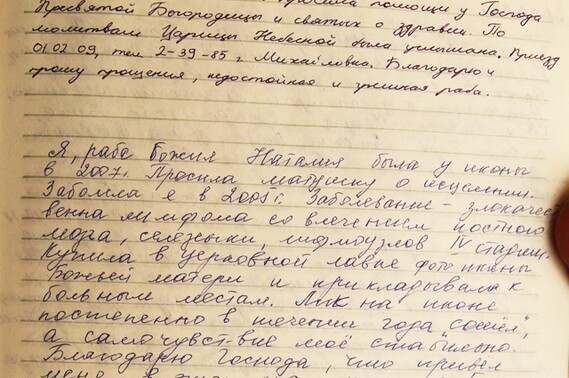 просила помощи у Господа
Пресвятой Богородицы и святых о здравии. По
молитвам Царицы Небесной была услышана. Приезд
01.02.09, тел 2-39-85 г. Михайловка. Благодарю и
прошу прощения, недостойная и грешная раба.
Я, раба Божия Наталия была у иконы
в 2007г. Просила матушку о исцелении.
Заболела я в 2005г. Заболевание - злокачест
венна лимфома со влечением костного
мозга, селезенки, лимфоузлов IV стадии.
Купила в церковной лавке фото иконы
Божьей матери и прикладывала к
больным местам. Лик на иконе
постепенно в течении года "сошёл",
а самочувствие моё стабильно.
Благодарю Господа, что привёл
меня